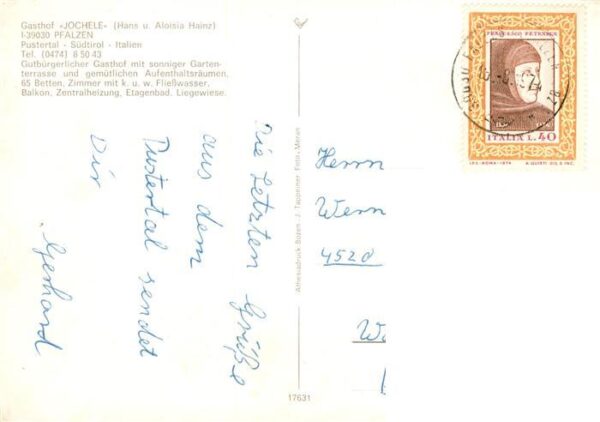 Gasthof «JOCHELE» (Hans u. Aloisia Hainz)
I-39030 PFALZEN
Pustertal - Südtirol - Italien
Tel. (0474) 8 50 43
Gutbürgerlicher Gasthof mit sonniger Garten-
terrasse und gemütlichen Aufenthaltsräumen,
65 Betten, Zimmer mit k. u. w. Fließwasser,
Balkon, Zentralheizung, Etagenbad. Liegewiese.
Die Letzten Grüße
aus dem
Pustertal sendet
Dir
Gerhard
Athesiadruck Bozen. J. Tappeiner Foto, Meran
17631
Herrn
Wern
4520
FRANCESCO PETRARCA
ITALIA L.40
1974